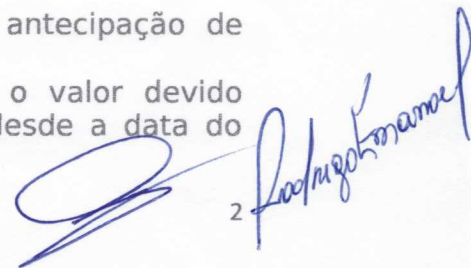 antecipação de
o valor devido
desde a data do
2 Rodrigo Emanoel